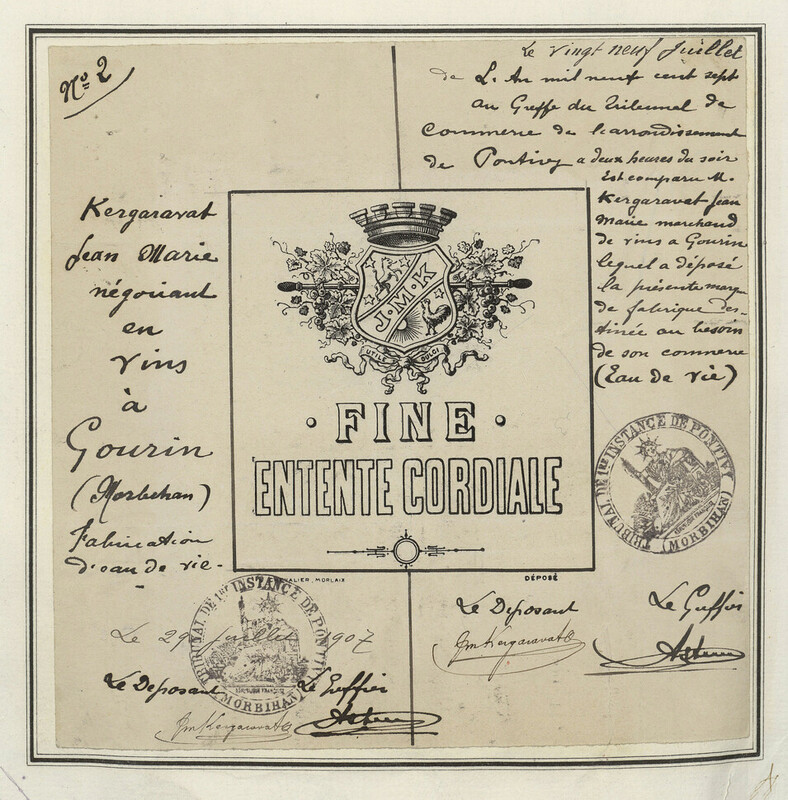 Nº 2
Kergaravat
Jean Marie
négociant
en
vins
à
Gourin
(Morbihan)
Fabrication
d'eau de vie.
Le vingt neuf juillet
de L'An mil neuf cent sept
au Greffe du Tribunal de
Commerce de l'arrondissement
de Pontivy a deux heures du soir
Est comparu M.
Kergaravat Jean
Marie marchand
de vins a Gourin
lequel a déposé
la présente marque
de fabrique des-
tinée au besoin
de son commerce
(Eau de vie)
J.M.K
UTILE DULCI
· FINE ·
ENTENTE CORDIALE
MORLAIX
DÉPOSÉ
TRIBUNAL DE 1ERE INSTANCE DE PONTIVY
(MORBIHAN)
Le Déposant
Le Greffier
JmKergaravat
TRIBUNAL DE 1ER INSTANCE DE PONTIVY
RÉPUBLIQUE FRANÇAISE
(MORBIHAN)
Le 29 juillet 1907
Le Déposant
Le Greffier
JmKergaravat